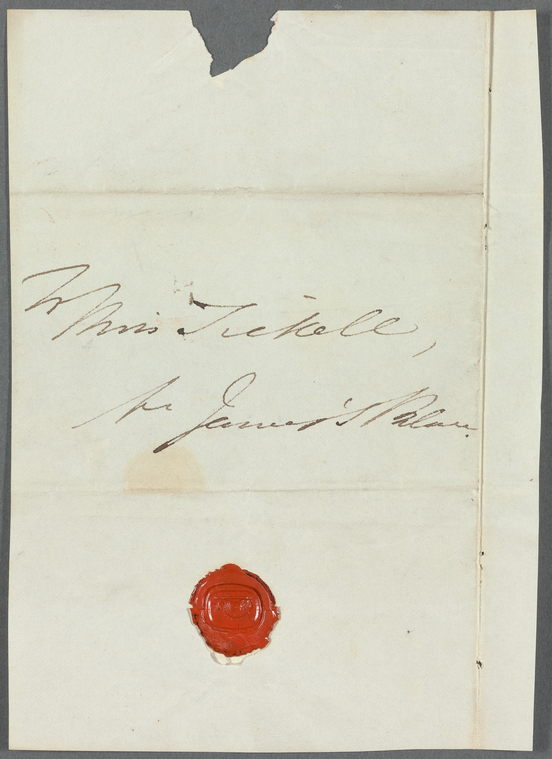 Miss Tickell,
St. James's Palace.